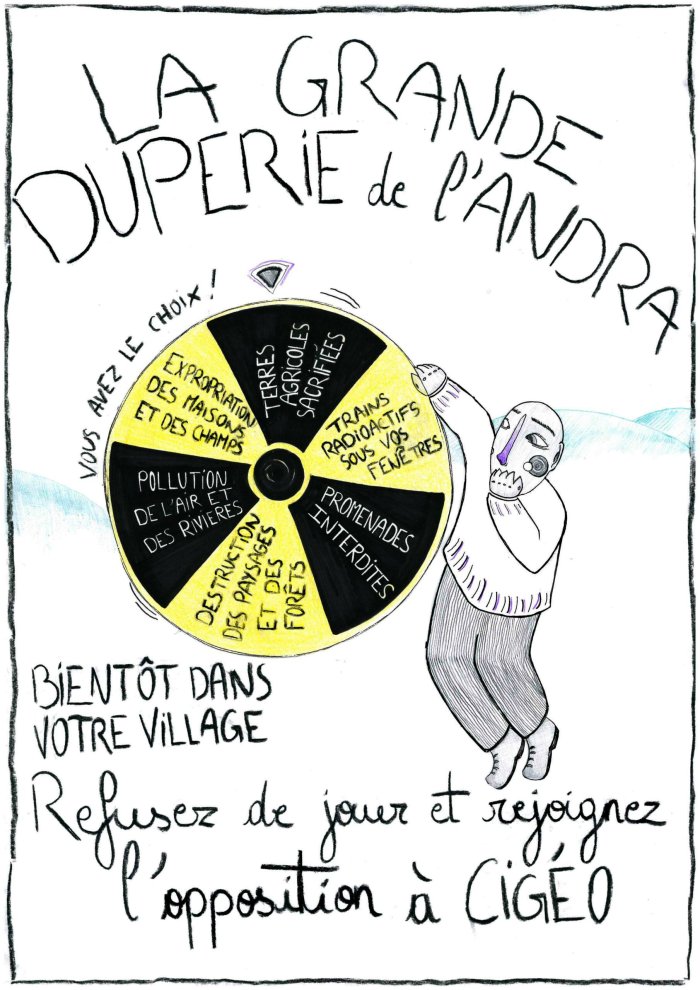 LA GRANDE
DUPERIE de l'ANDRA
VOUS AVEZ LE CHOIX !
TERRES
AGRICOLES
SACRIFIÉES
TRAINS
RADIOACTIFS
SOUS VOS
FENÊTRES
PROMENADES
INTERDITES
DESTRUCTION
DES PAYSAGES
ET DES
FORÊTS
POLLUTION
DE L'AIR ET
DES RIVIERES
EXPROPRIATION
DES MAISONS
ET DES CHAMPS
BIENTÔT DANS
VOTRE VILLAGE
Refusez de jouer et rejoignez
l'opposition à CIGÉO